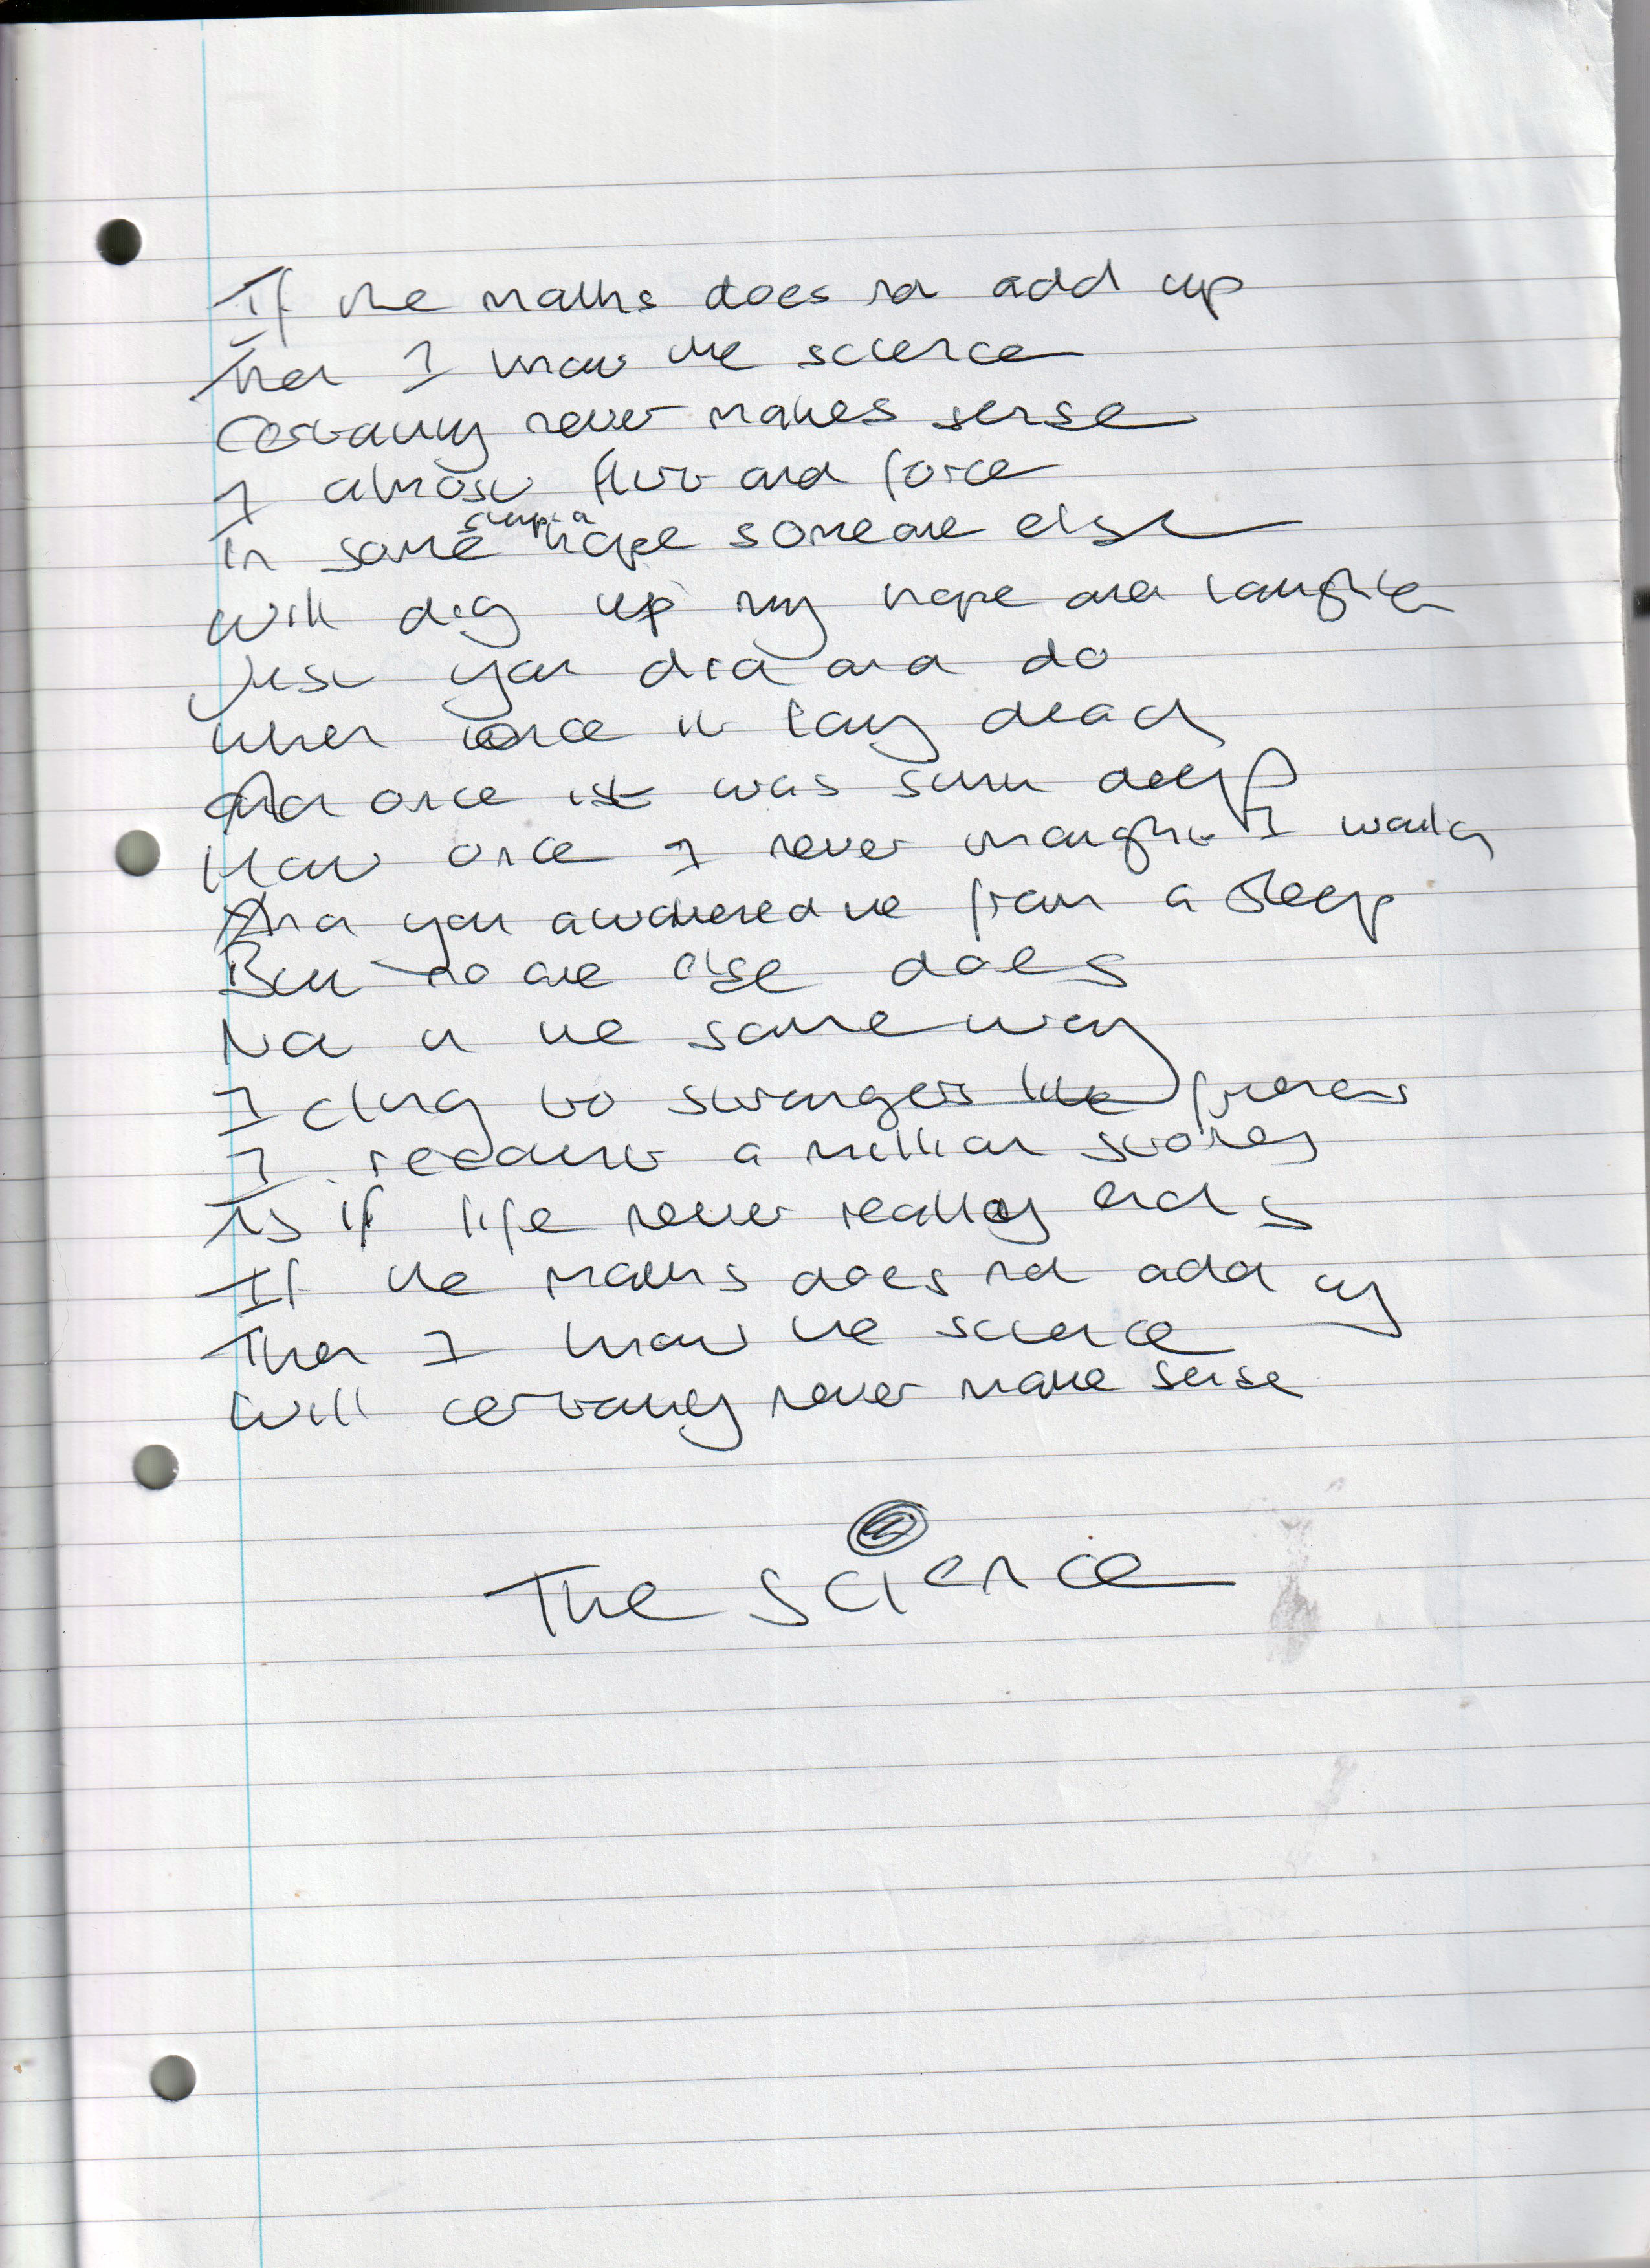 If the maths does not add up
Then I know the science
Certainly never makes sense
I almost flirt and force
In some stupid hope someone else
Will dig up my hope and laughter
Just you did and do
When once it lay dead
And once it was sunk deep
How once I never thought I would
And you awakened me from a sleep
But no one else does
Not in the same way
I cling to strangers like friends
I recount a million stories
As if life never really ends
If the maths does not add up
Then I know the science
Will certainly never make sense
The Science